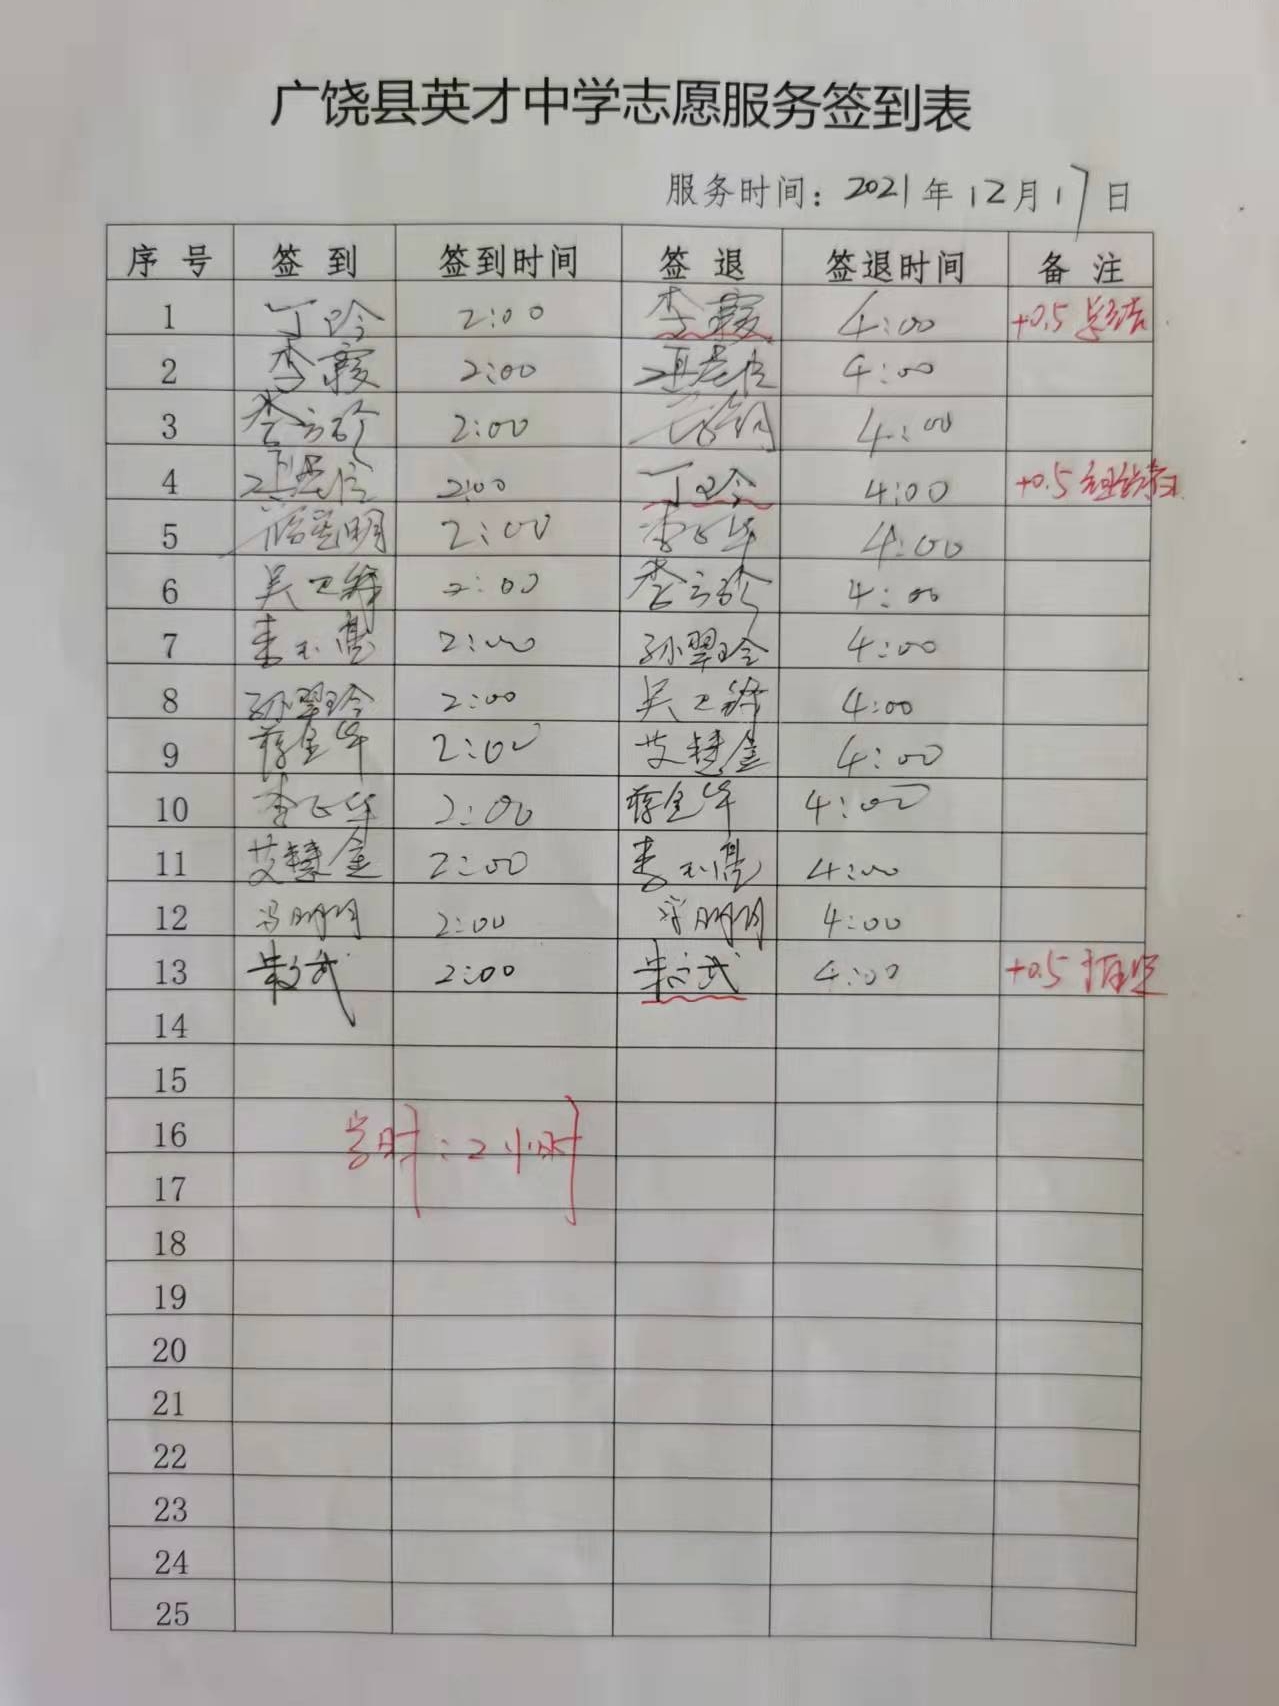 广饶县英才中学志愿服务签到表
服务时间：2021年12月17日
序号 签到 签到时间 签退 签退时间 备注
1 丁玲 2:00 李霞 4:00 +0.5 总结
2 李霞 2:00 4:00
3 2:00 4:00
4 2:00 丁玲 4:00 +0.5
5 2:00 李飞华 4:00
6 吴卫锋 2:00 4:00
7 李玉亮 2:00 孙翠玲 4:00
8 孙翠玲 2:00 吴卫锋 4:00
9 蒋金华 2:00 艾慧金 4:00
10 李飞华 2:00 蒋金华 4:00
11 艾慧金 2:00 李玉亮 4:00
12 冯明明 2:00 明明 4:00
13 2:00 4:00 +0.5
14
15
16
学时：2小时
17
18
19
20
21
22
23
24
25